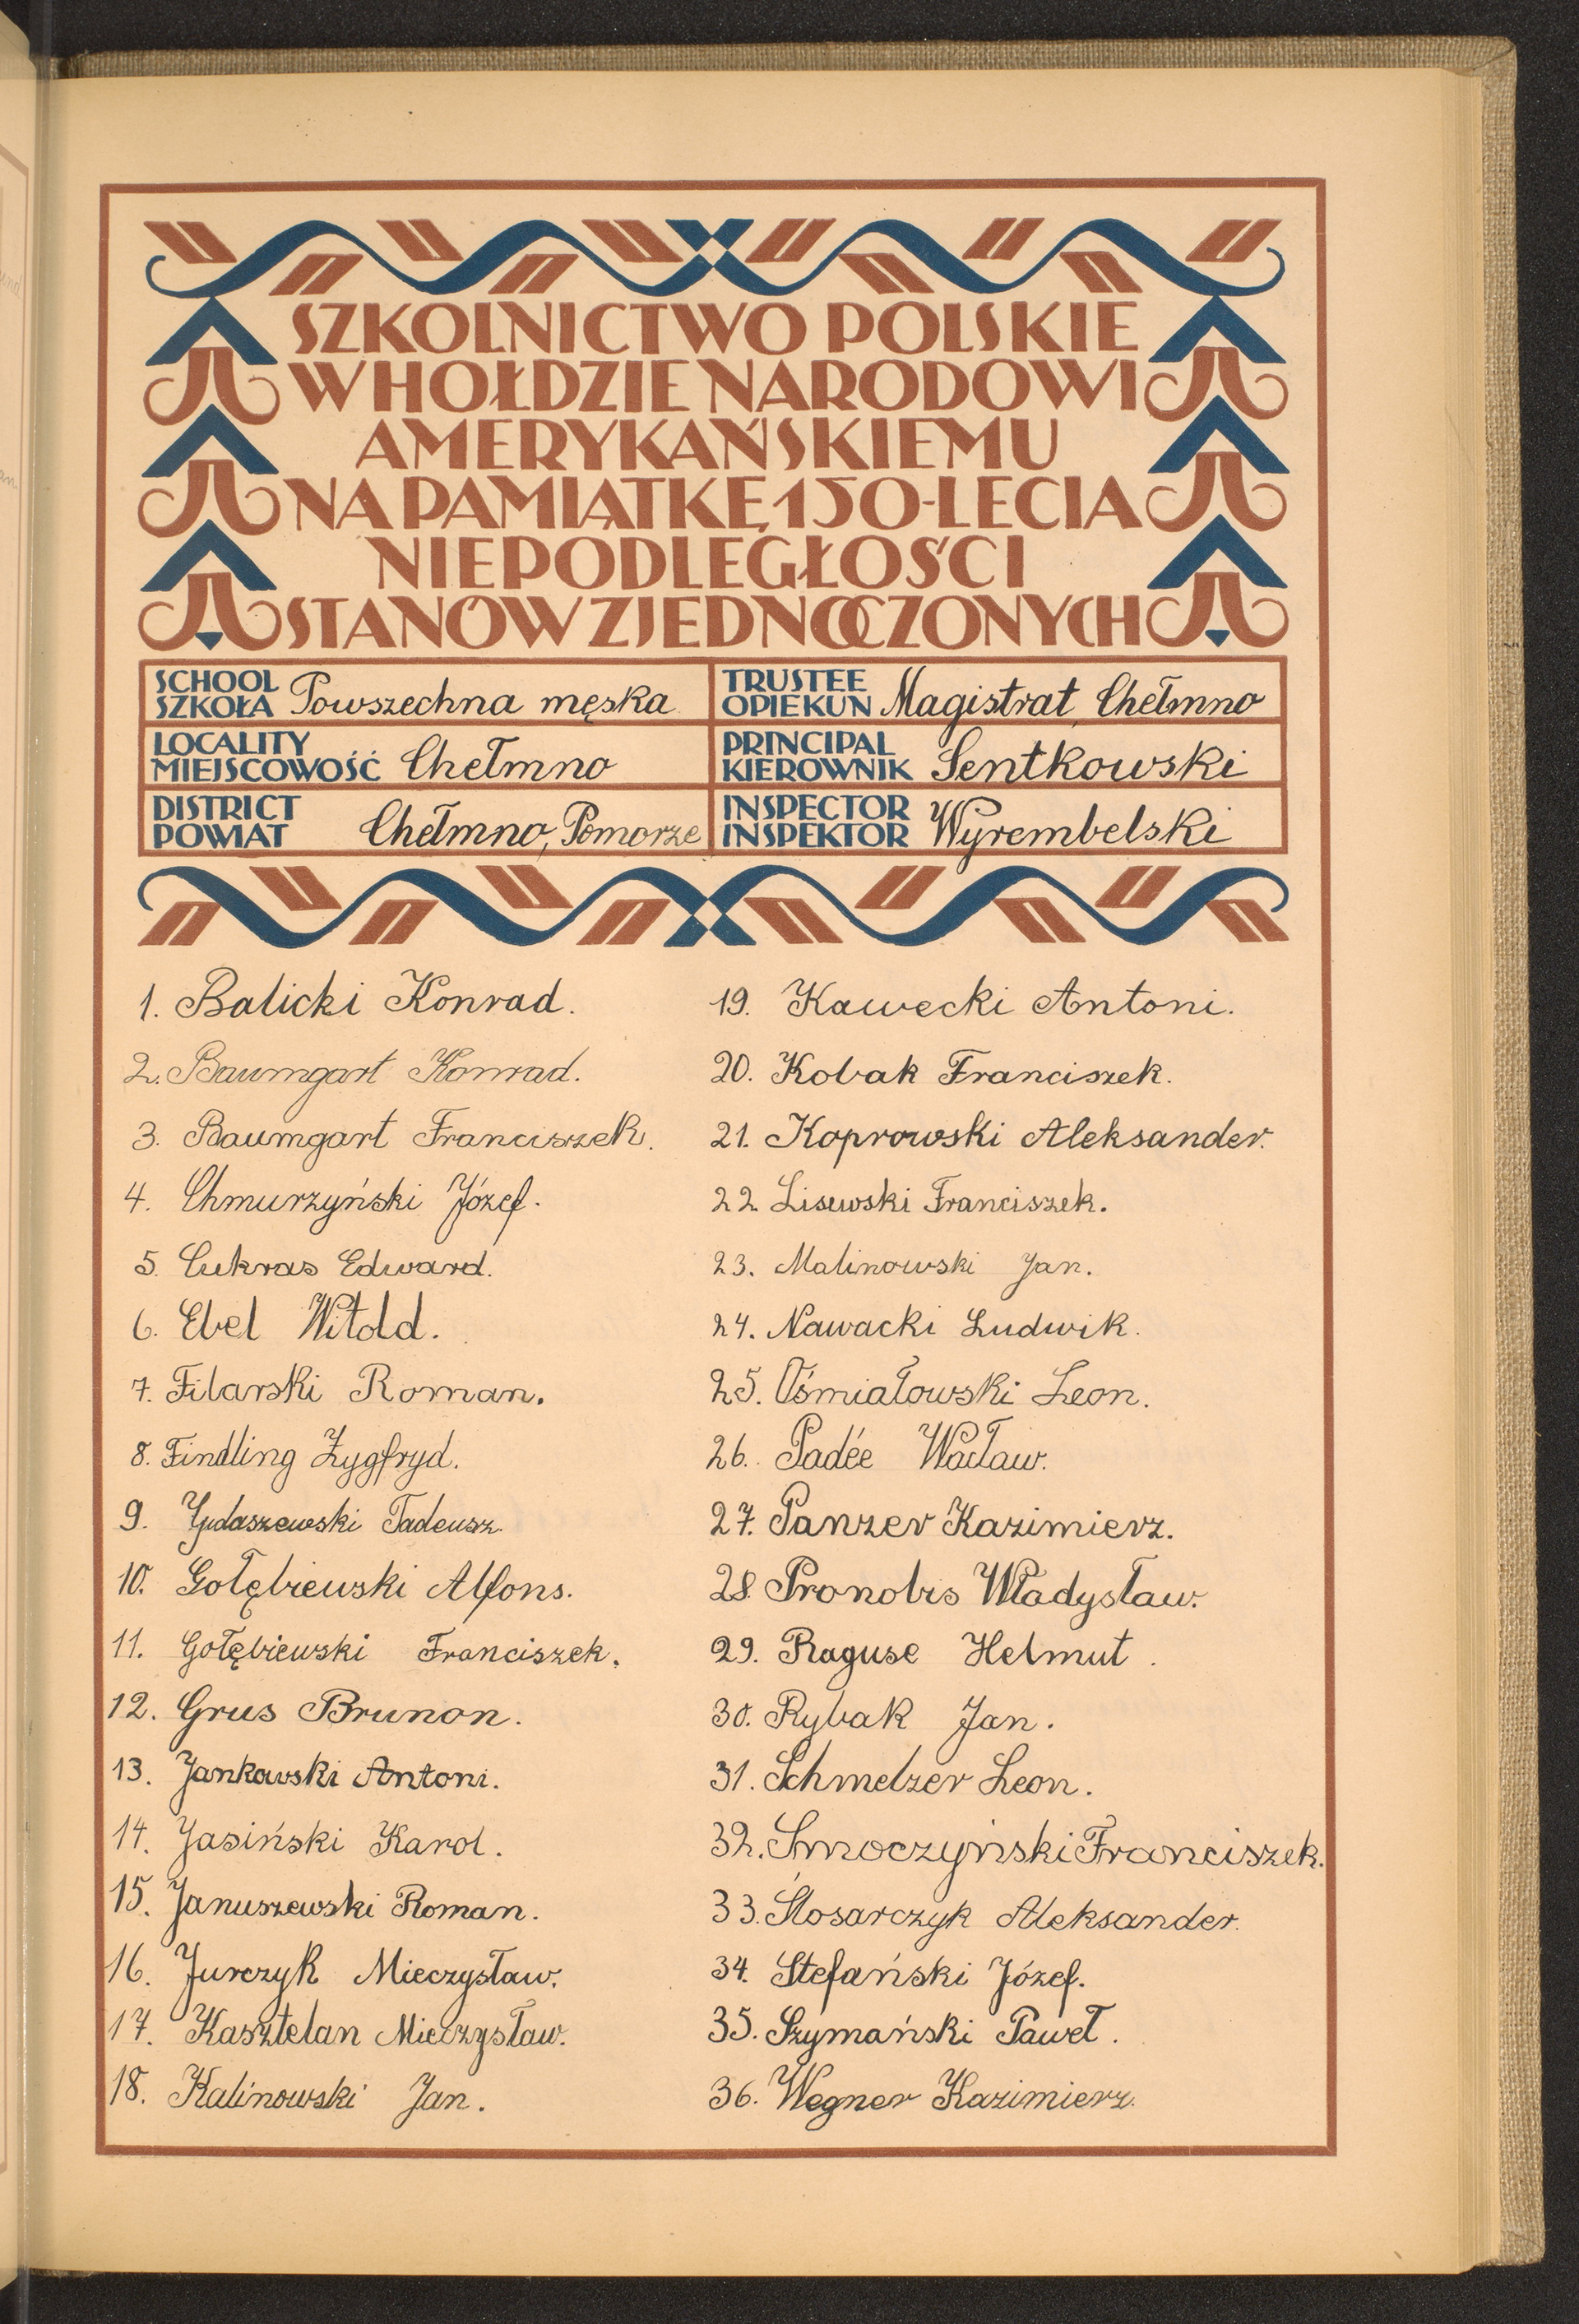 SZKOLNICTWO POLSKIE
W HOŁDZIE NARODOWI
AMERYKAŃSKIEMU
NA PAMIĄTKĘ 150-LECIA
NIEPODLEGŁOŚCI
STANÓW ZJEDNOCZONYCH
SCHOOL
SZKOŁA Powszechna męska
TRUSTEE
OPIEKUN Magistrat, Chełmno
LOCALITY
MIEJSCOWOŚĆ Chełmno
PRINCIPAL
KIEROWNIK Sentkowski
DISTRICT
POWIAT Chełmno, Pomorze
INSPECTOR
INSPEKTOR Wyrembelski
1. Balicki Konrad.
2. Baumgart Konrad.
3. Baumgart Franciszek.
4. Chmurzyński Józef.
5. Cukras Edward.
6. Ebel Witold.
7. Filarski Roman.
8. Findling Zygfryd.
9. Tadeusz.
10. Gołębiewski Alfons.
11. Gołębiewski Franciszek.
12. Grus Brunon.
13. Jankowski Antoni.
14. Jasiński Karol.
15. Januszewski Roman.
16. Jurczyk Mieczysław.
17. Kasztelan Mieczysław.
18. Kalinowski Jan.
19. Kawecki Antoni.
20. Kobak Franciszek.
21. Koprowski Aleksander.
22. Lisewski Franciszek.
23. Malinowski Jan.
24. Nawacki Ludwik.
25. Ośmiałowski Leon.
26. Padée Wacław.
27. Panzer Kazimierz.
28. Pronobis Władysław.
29. Raguse Helmut.
30. Rybak Jan.
31. Schmelzer Leon.
32. Smoczyński Franciszek.
33. Ślosarczyk Aleksander.
34. Stefański Józef.
35. Szymański Paweł.
36. Wegner Kazimierz.